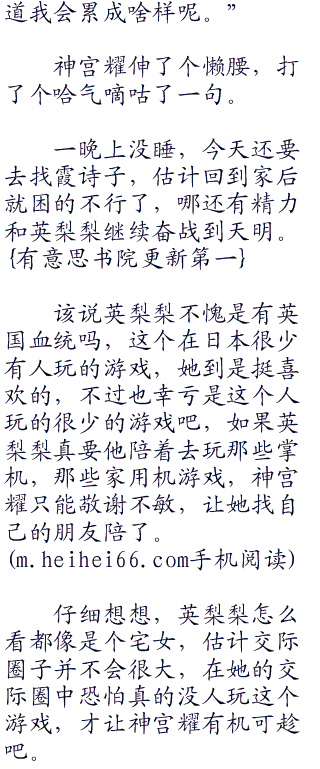 道我会累成啥样呢。”
神宫耀伸了个懒腰，打
了个哈气嘀咕了一句。
一晚上没睡，今天还要
去找霞诗子，估计回到家后
就困的不行了，哪还有精力
和英梨梨继续奋战到天明。
{有意思书院更新第一}
该说英梨梨不愧是有英
国血统吗，这个在日本很少
有人玩的游戏，她到是挺喜
欢的，不过也幸亏是这个人
玩的很少的游戏吧，如果英
梨梨真要他陪着去玩那些掌
机，那些家用机游戏，神宫
耀只能敬谢不敏，让她找自
己的朋友陪了。
(m.heihei66.com手机阅读)
仔细想想，英梨梨怎么
看都像是个宅女，估计交际
圈子并不会很大，在她的交
际圈中恐怕真的没人玩这个
游戏，才让神宫耀有机可趁
吧。